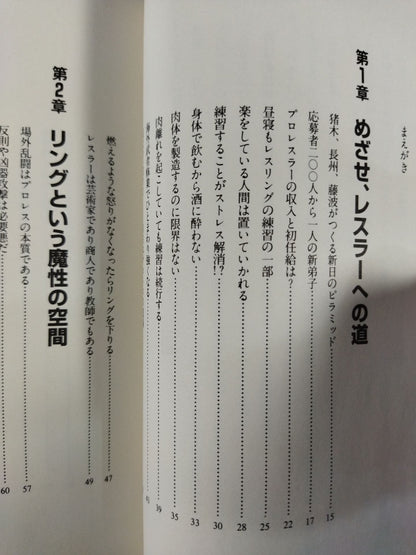 まえがき
第1章 めざせ、レスラーへの道
猪木、長州、藤波がつくる新日のピラミッド 15
応募者二〇〇人から一人の新弟子 17
プロレスラーの収入と初任給は? 22
昼寝もレスリングの練習の一部 25
楽をしている人間は置いていかれる 28
練習することがストレス解消!? 30
身体で飲むから酒に酔わない 33
肉体を製造するのに限界はない 35
肉離れを起こしていても練習は続行する 39
第2章 リングという魔性の空間
燃えるような怒りがなくなったらリングを下りる 47
レスラーは芸術家であり商人であり教師でもある 49
場外乱闘はプロレスの本質である 57
反則や凶器攻撃は必要悪だ 60